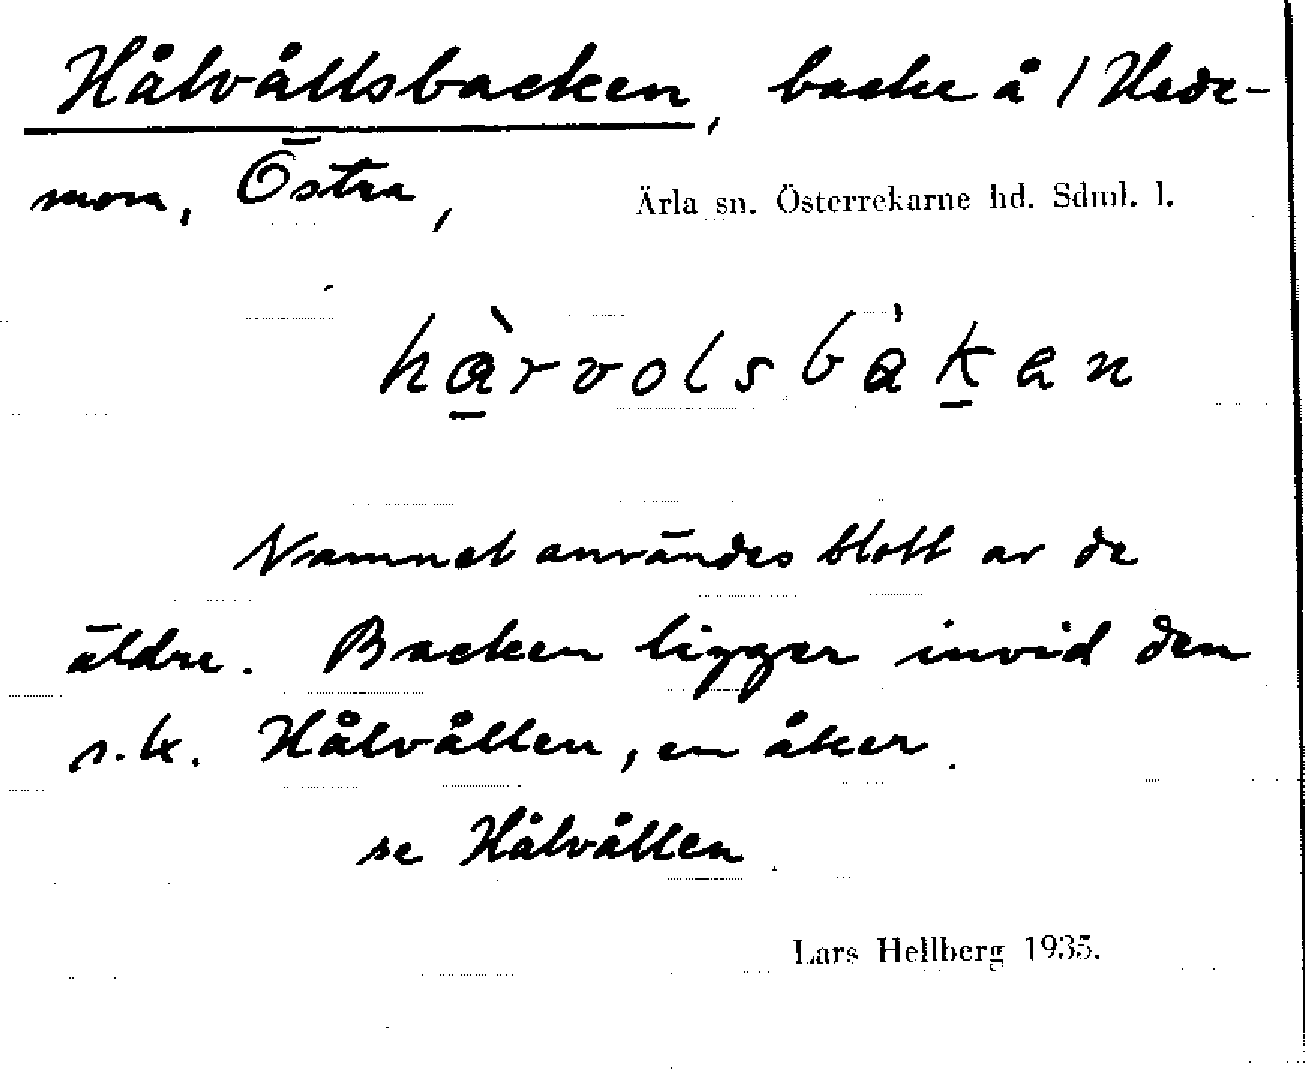 Hålvållsbacken, backe å 1 Hede-
mora, Östra, Ärla sn. Österrekarne hd. Sdml. l.
hàrvolsbàkan
Namnet användes blott av de
äldre. Backen ligger invid den
s.k. Hålvållen, en åker.
se Hålvållen
Lars Hellberg 1935.